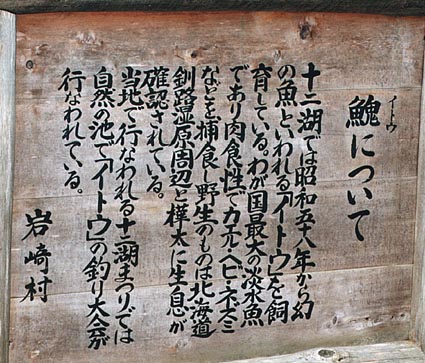 イトウ
鮸について
十二湖では昭和五十八年から幻
の魚といわれる「イトウ」を飼
育している。わが国最大の淡水魚
であり肉食性でカエル・ヘビ・ネズミ
などを捕食し野生のものは北海道
釧路湿原周辺と樺太に生息が
確認されている。
当地で行なわれる十二湖まつりでは
自然の池で「イトウ」の釣り大会が
行なわれている。
岩崎村